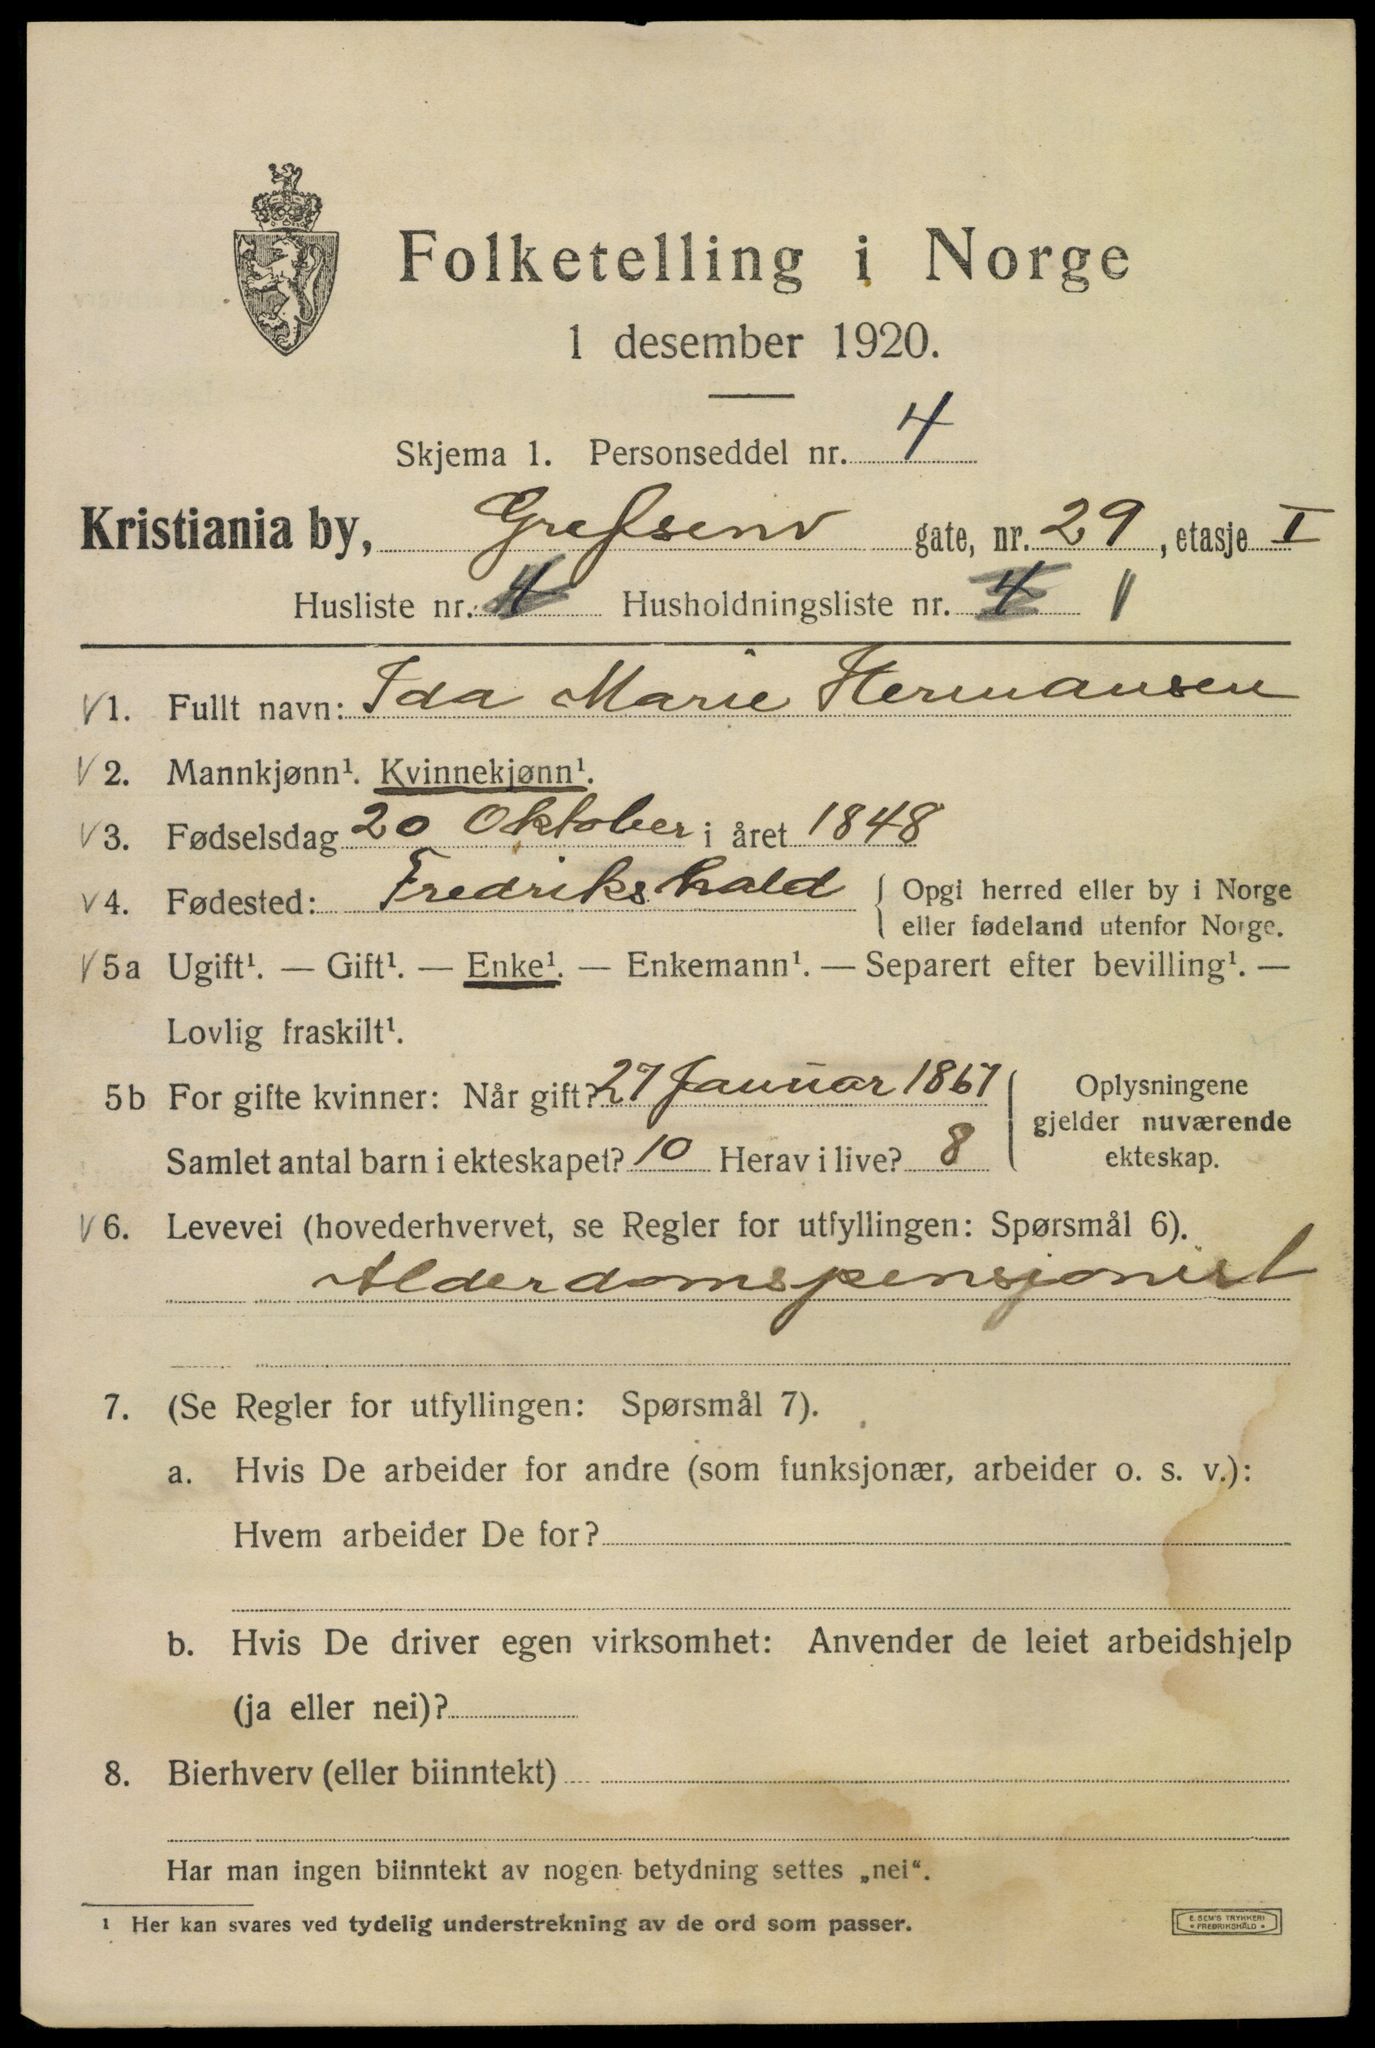 Folketelling i Norge
1 desember 1920.
Skjema 1. Personseddel nr. 4
Kristiania by, Grefsenv gate, nr. 29, etasje I
Husliste nr. 4 Husholdningsliste nr. 4 1
V1. Fullt navn: Ida Marie Hermansen
V2. Mannkjønn¹. Kvinnekjønn¹.
V3. Fødselsdag 20 Oktober i året 1848
V4. Fødested: Fredrikshald { Opgi herred eller by i Norge
eller fødeland utenfor Norge.
V5a Ugift¹. — Gift¹. — Enke¹. — Enkemann¹. — Separert efter bevilling¹. —
Lovlig fraskilt¹.
5b For gifte kvinner: Når gift? 27 Januar 1867 { Oplysningene
gjelder nuværende
Samlet antal barn i ekteskapet? 10 Herav i live? 8 ekteskap.
V6. Levevei (hovederhvervet, se Regler for utfyllingen: Spørsmål 6).
Alderdomspensjonist
7. (Se Regler for utfyllingen: Spørsmål 7).
a. Hvis De arbeider for andre (som funksjonær, arbeider o. s. v.):
Hvem arbeider De for?
b. Hvis De driver egen virksomhet: Anvender de leiet arbeidshjelp
(ja eller nei)?
8. Bierhverv (eller biinntekt)
Har man ingen biinntekt av nogen betydning settes „nei“.
¹ Her kan svares ved tydelig understrekning av de ord som passer.
E. SEM'S TRYKKERI
• FREDRIKSHALD •